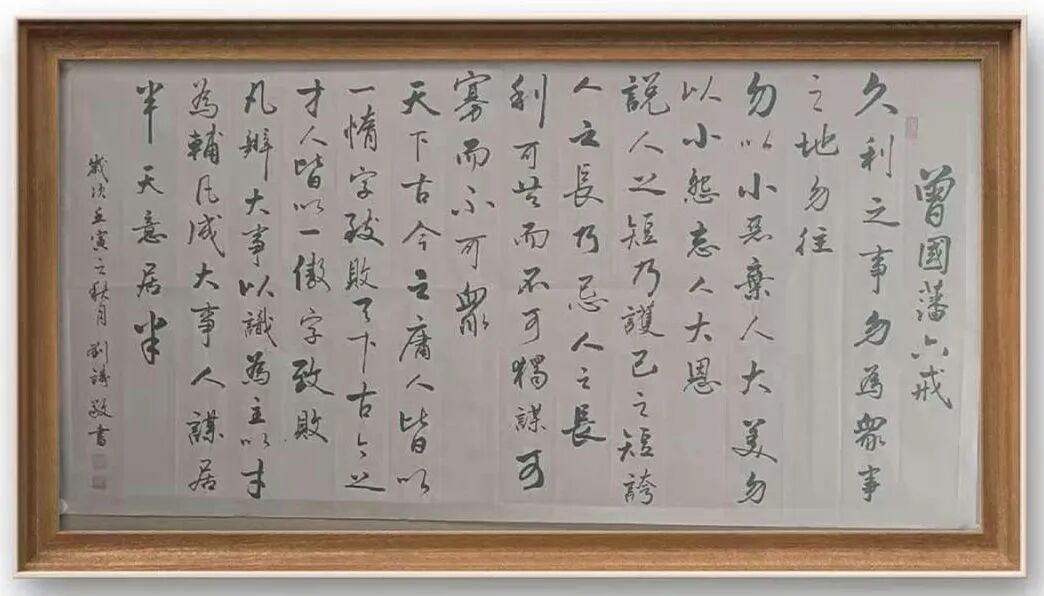 曾國藩六戒
久利之事勿為眾爭
之地勿往
勿以小惡棄人大美勿
以小怨忘人大恩
說人之短乃護己之短誇
人之長乃忌人之長
利可共而不可獨謀可
寡而不可眾
天下古今之庸人皆以
一惰字致敗天下古今之
才人皆以一傲字致敗
凡辦大事以識為主以才
為輔凡成大事人謀居
半天意居半
歲次壬寅之秋月劉敬書